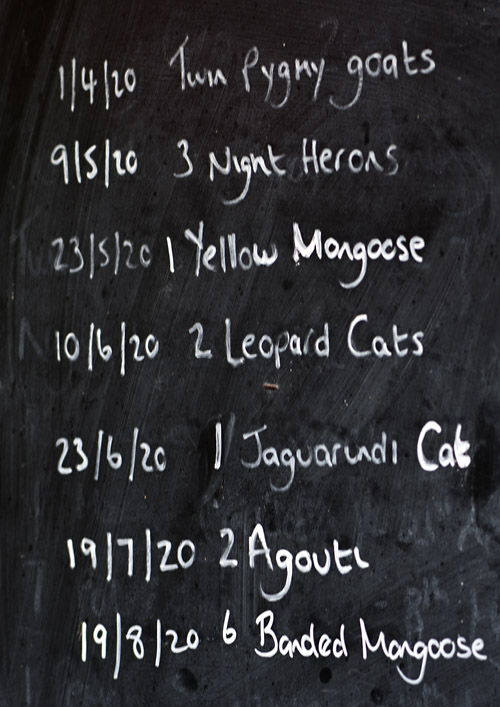 1/4/20 Twin Pygmy goats
9/5/20 3 Night Herons
23/5/20 1 Yellow Mongoose
10/6/20 2 Leopard Cats
23/6/20 1 Jaguarundi Cat
19/7/20 2 Agouti
19/8/20 6 Banded Mongoose